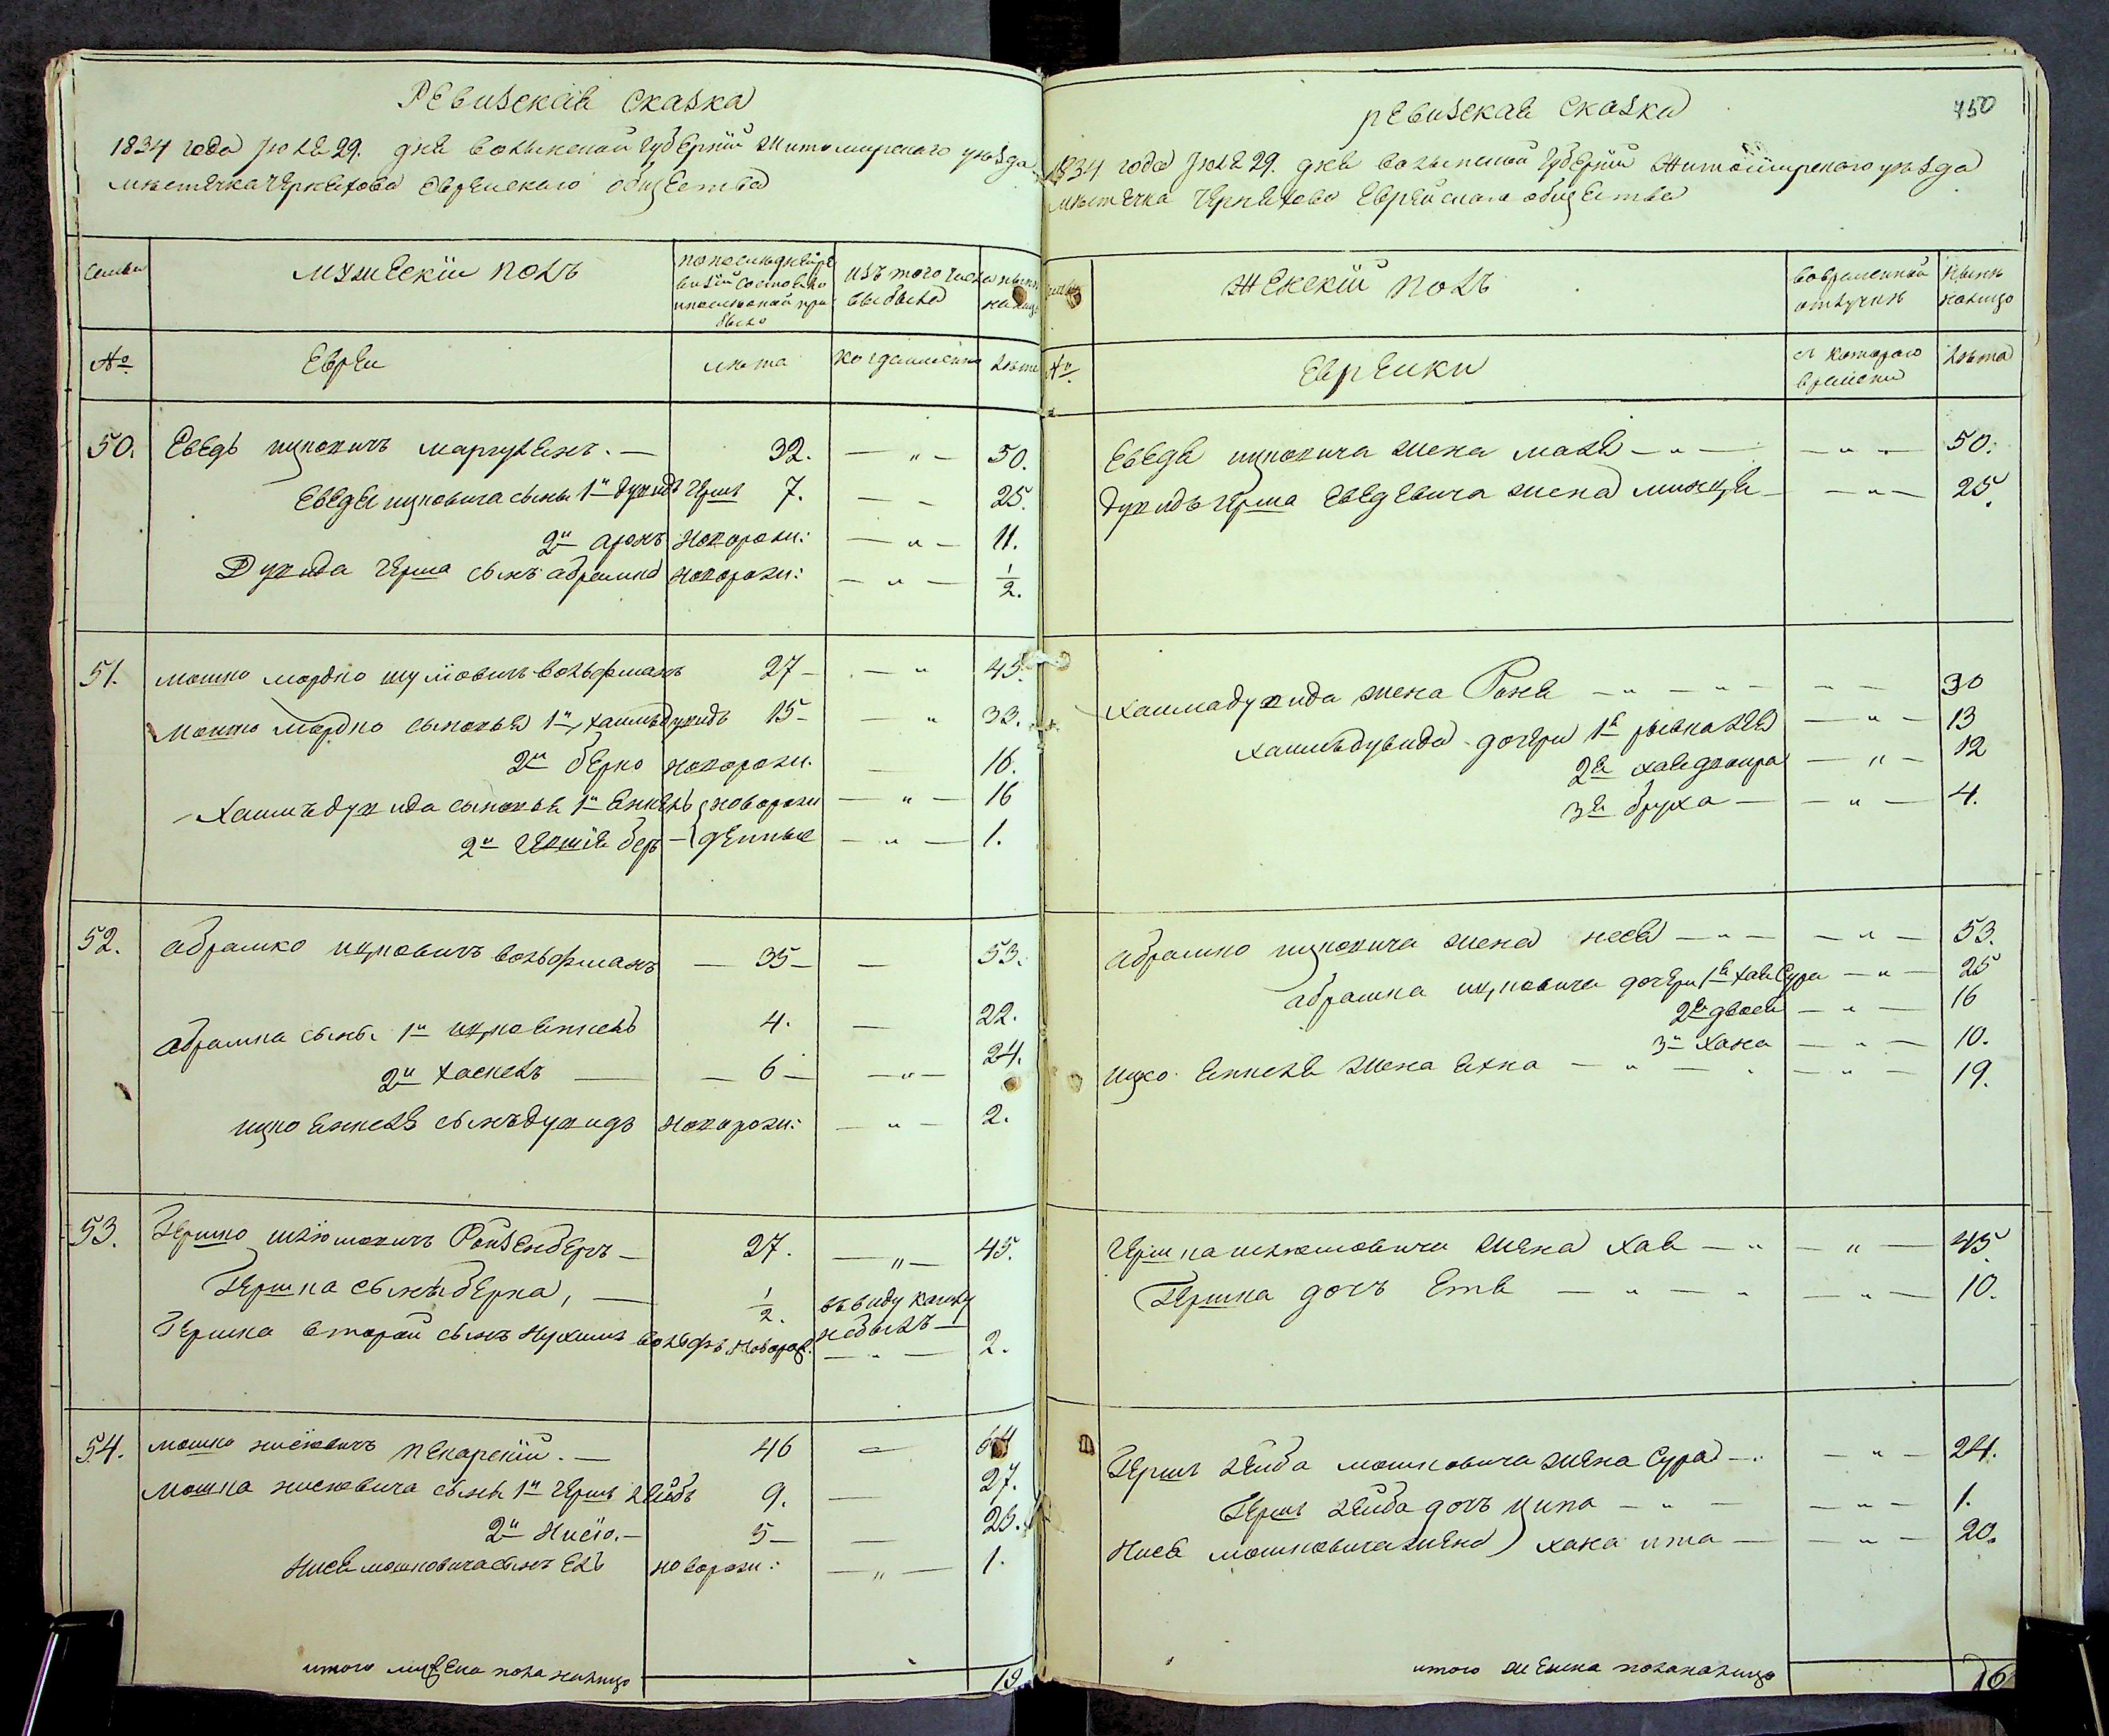 Ревизская Сказка
1834 года Июля 29. дня Волынской Губернии Житомирского уезда
местечка Черняхова Еврейского общества
Семьи
мужеский полъ
по последней ре
визии состояло
и после оной при
было
изъ того числа
выбыло
ныне
налицо
№
Евреи
лета
когда именно
лета
50. Еведь ицковичъ Маргулянъ. — 32. — " — 50.
Еведя ицковича сыны 1й Дувидъ Гершъ 7. — — 25.
2й аронъ новорожд: — " — 11.
Дувида Герша сынъ абрамко новорожд: — " — 1/2.
51. мошко мордко шулiовичъ вольфманъ 27 — — " 45.
мошко мордко сыновья 1й, хаимъ дувидъ 15 — — " 33.
2й берко новорожд. — 16.
Хаимъ дувида сыновья 1й янкель новорож — " — 16
2й бер — денные — " — 1.
52. абрамко ицковичъ вольфманъ — 35 — — 53.
абрамка сыны 1й ицко янкель 4. — 22.
2й хаскель — — 6 — — " — 24.
ицко янкеля сынъ дувидъ новорожд: — " — 2.
53. Гершко шлiомовичъ Ройзенберъ — 27. — " — 45.
Гершка сынъ берка, — 1/2.
небылъ —
Гершка второй сынъ Нухимъ вольфъ новорож. — " — 2.
54. мошко нисковичъ пекарскiй. — 46 —
мошка нисковича сыны 1й Гершъ лейбъ 9. — 27.
2й Нисiо. — 5 — — 23.
Нися мошковича сынъ Ель новорожд: — " — 1.
итого мужеска пола налицо 19.
ревизская сказка
750
1834 года Июля 29. дня волынской Губернии Житомирского уезда
местечка Черняхова Еврейского общества
семьи
женскiй полъ
во временной
отлучке
ныне
налицо
№
Еврейки
с которого
времени
лета
Еведя ицковича жена маля — " — — " — 50.
Дувидъ Герша Еведевича жена минця — — " — 25.
Хаима дувида жена Роня — " — " — — — 30
хаимъ дувида дочери 1я рывка лея — " — 13
2я хая двойра — " — 12
3я бруха — — " — 4.
абрамко ицковича жена неся — " — — " — 53.
абрамка ицковича дочери 1я хая Сура — " — 25
2я двося — " — 16
3я Хана — " — 10.
ицко янкеля жена яхна — " — " — " — 19.
Гершка шлiомовича жена хая — " — " — 45
Гершка дочъ Етя — " — " — " — 10.
Гершъ лейба мошковича жена Сура — " — " — 24.
Гершъ лейба дочъ ципа — " — — " — 1.
Нися мошковича жена хана ита — — " — 20.
итого женска пола налицо 16